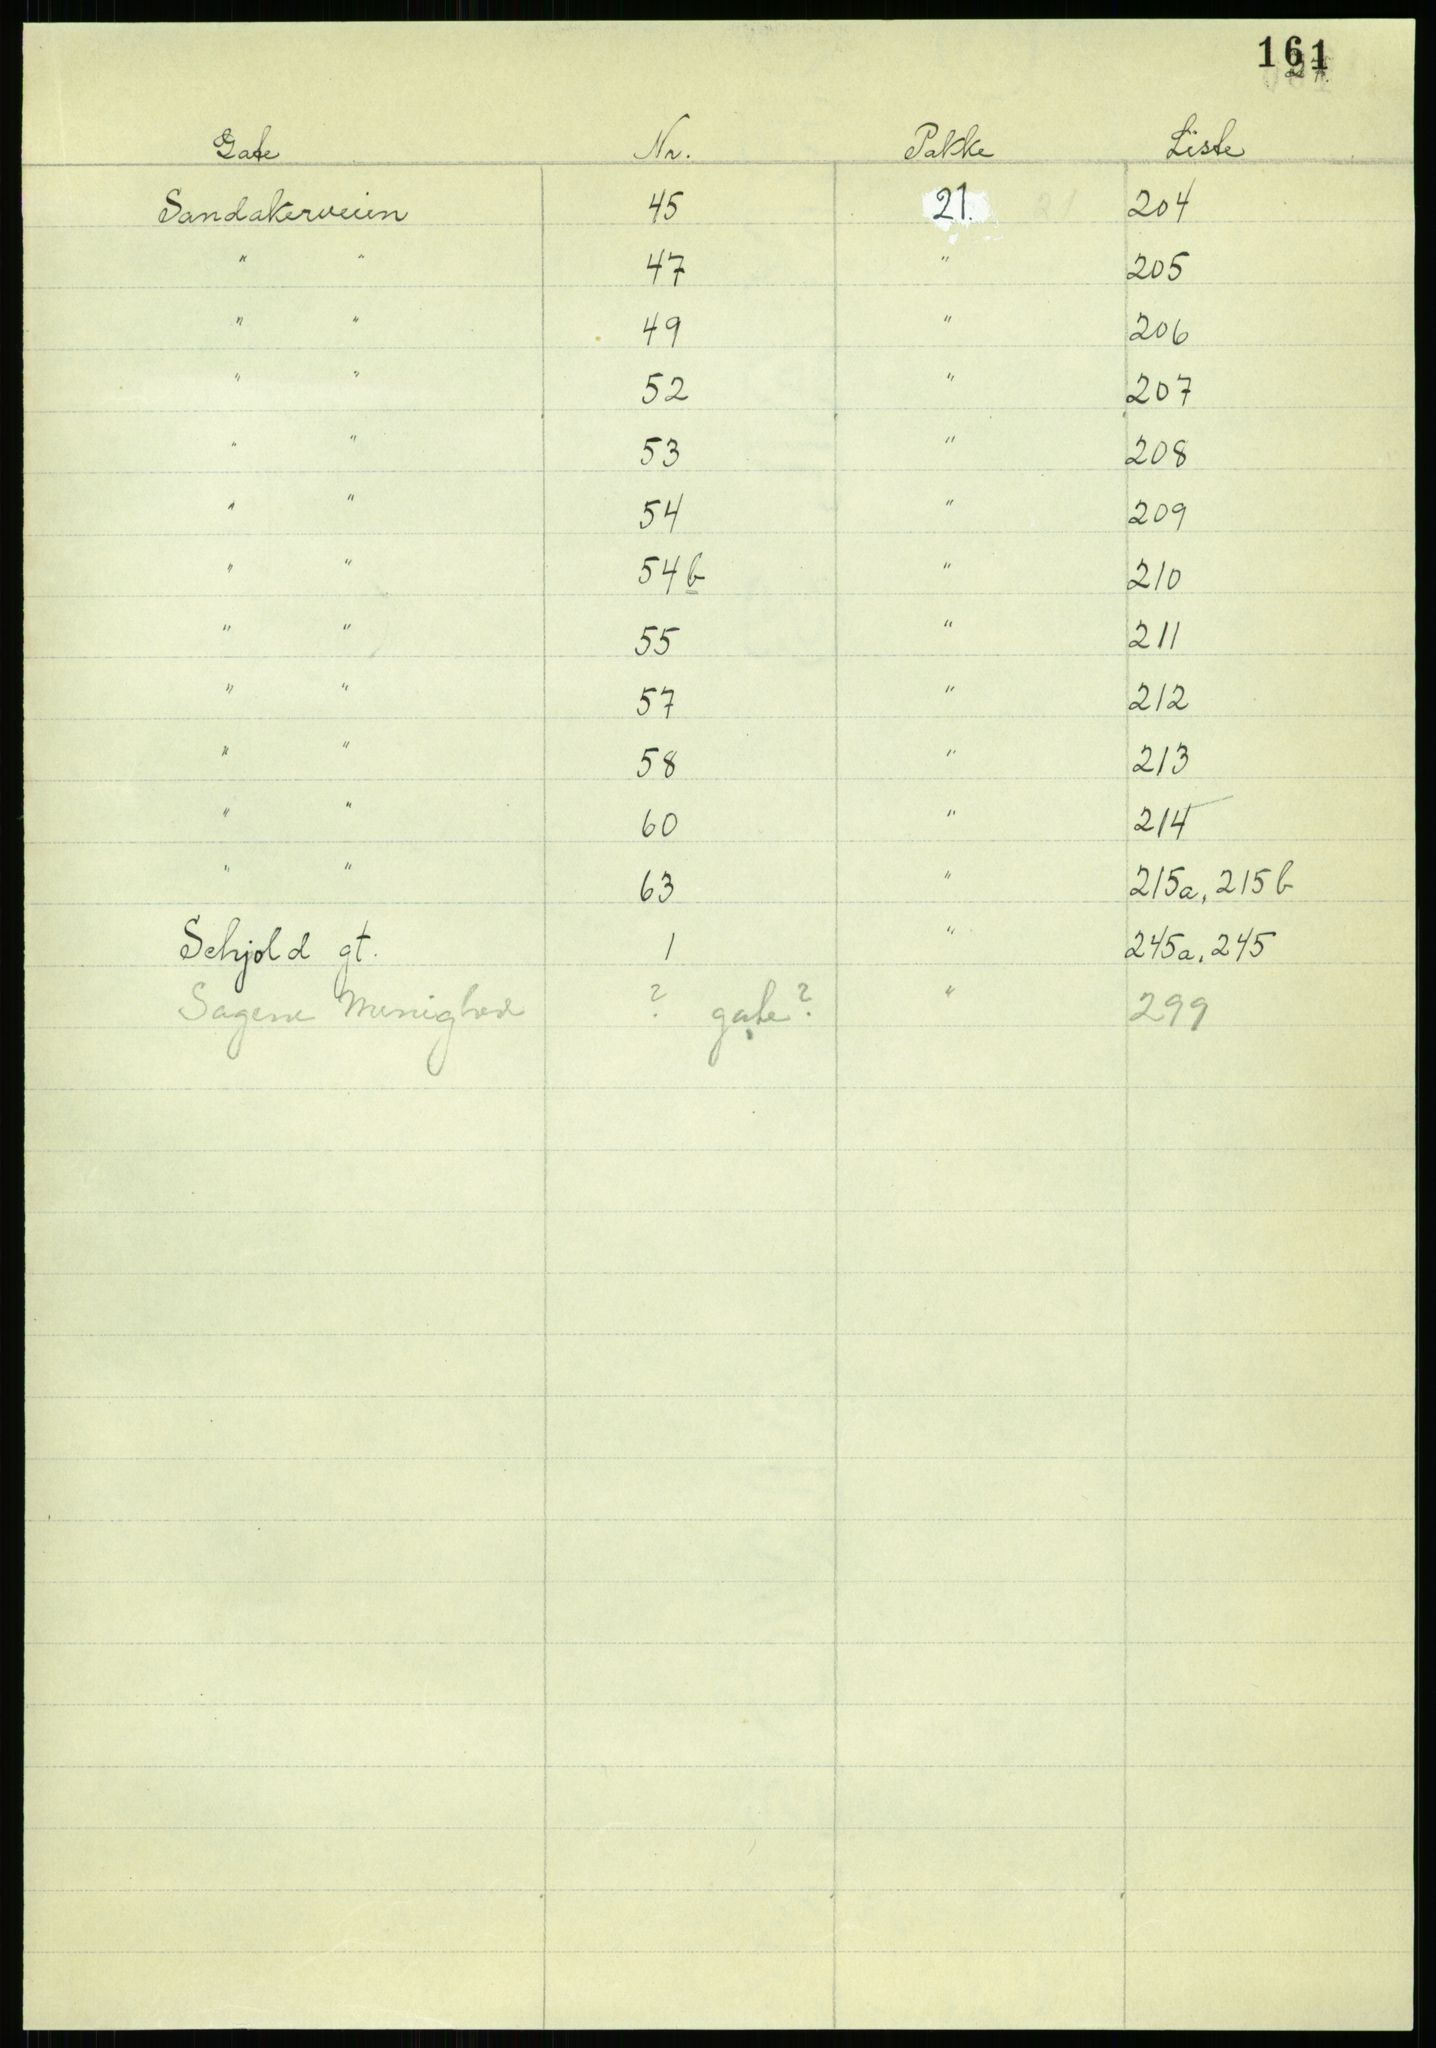 161
Gate Nr. Pakke Liste
Sandakerveien 45 21. 204
" " 47 " 205
" " 49 " 206
" " 52 " 207
" " 53 " 208
" " 54 " 209
" " 54b " 210
" " 55 " 211
" " 57 " 212
" " 58 " 213
" " 60 " 214
" " 63 " 215a, 215b
Schjold gt. 1 " 245a, 245
Sagene Menighed ? gate? " 299